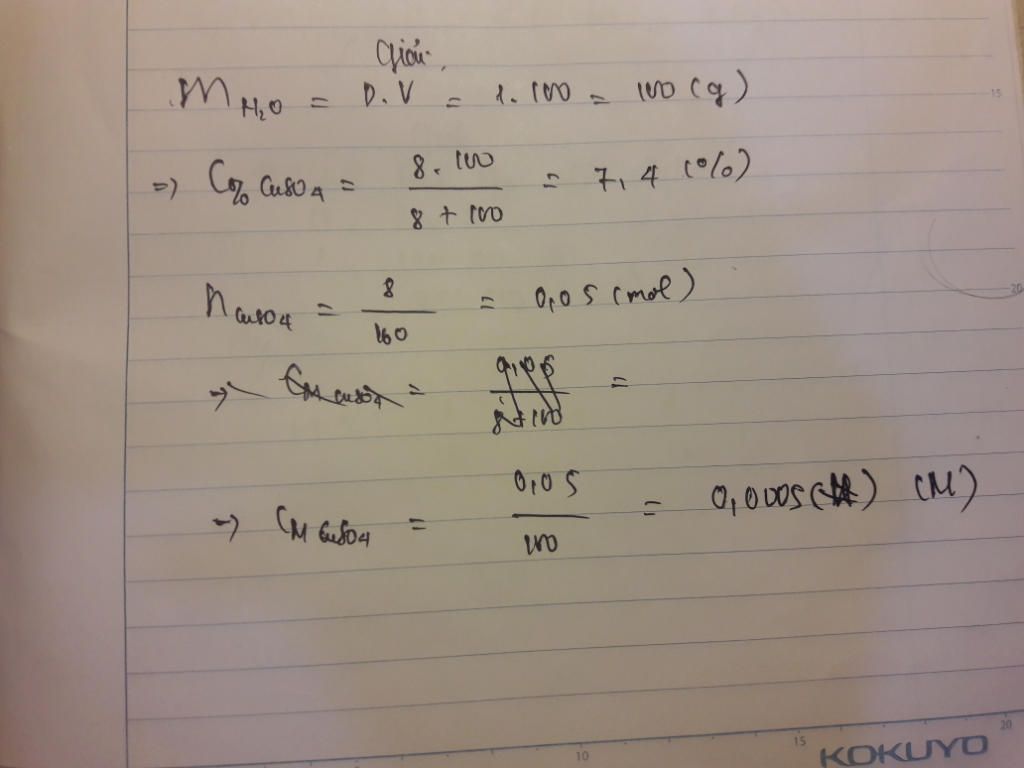 Giải.
m H₂O = D.V = 1.100 = 100 (g)
=> C% CuSO₄ = 8.100 / 8 + 100 = 7,4 (%)
n CuSO₄ = 8 / 160 = 0,05 (mol)
=> C M CuSO₄ = 0,05 / 8+100 =
=> C M CuSO₄ = 0,05 / 100 = 0,0005 (M) (M)
15
20
10 15 20
KOKUYO